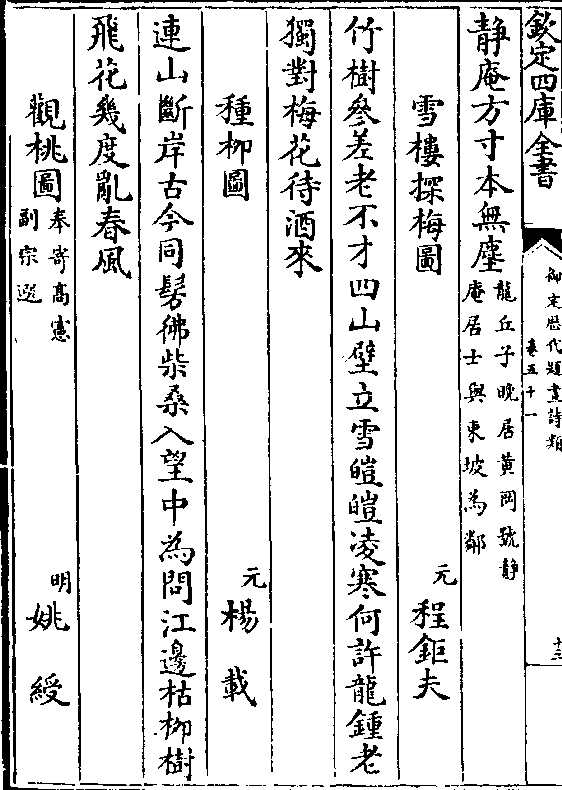 欽定四庫全書
御定歴代題畫詩類
卷五十一
十三
静庵方寸本無塵龍丘子晚居黄岡號静
庵居士與東坡為鄰
雪樓探梅圖 元 程鉅夫
竹樹參差老不才四山壁立雪皚皚凌寒何許龍鍾老
獨對梅花待酒來
種柳圖 元 楊載
連山斷岸古今同髣彿柴桑入望中為問江邊枯柳樹
飛花幾度亂春風
觀桃圖奉寄髙憲
副宗選 明 姚綬